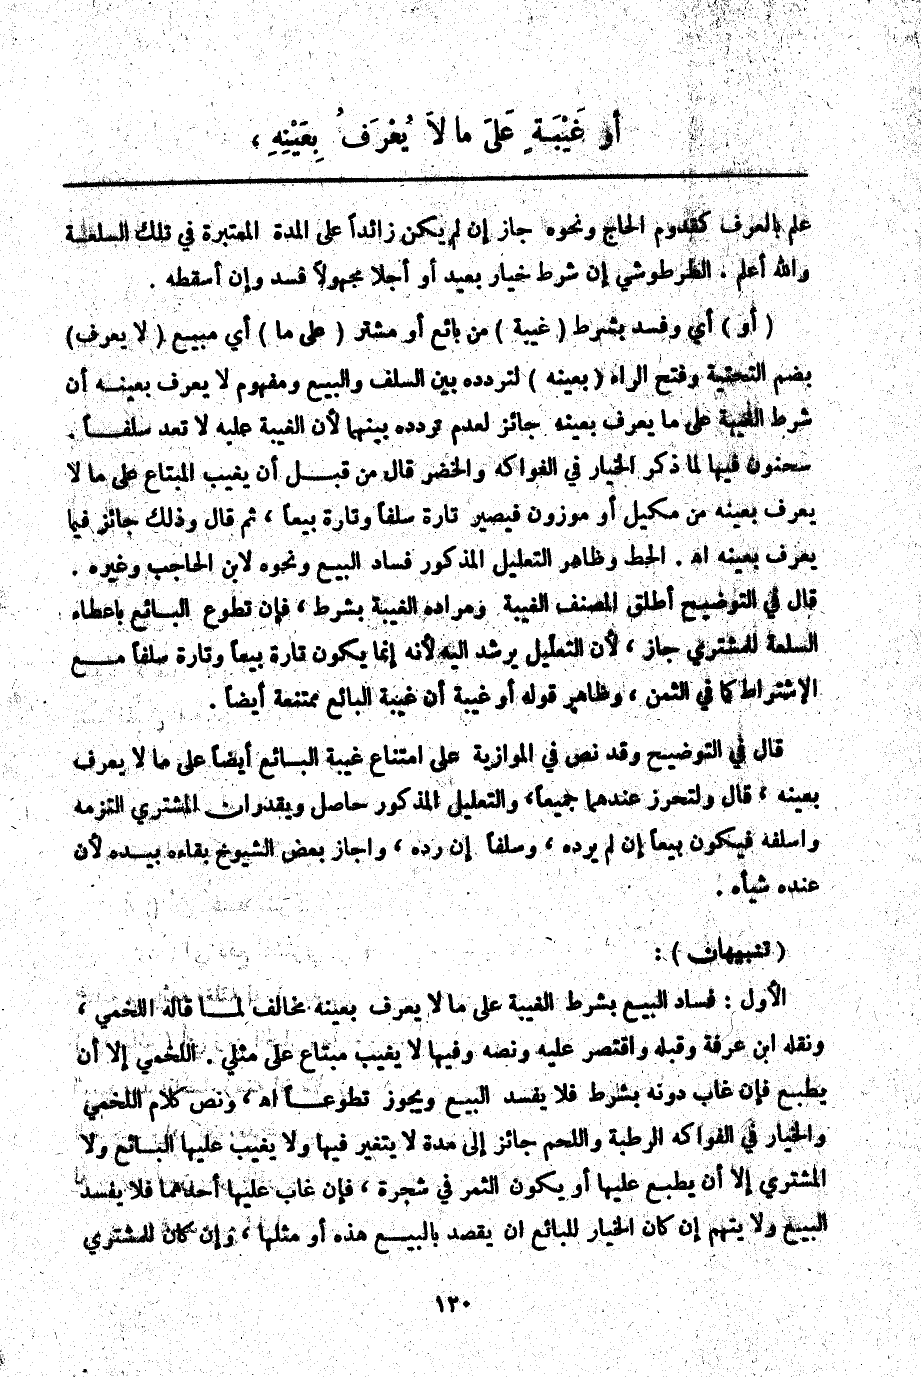 أو غَيْبَةٍ عَلَى ما لاَ يُعْرَفُ بِعَيْنِهِ ،
علم بالعرف كقدوم الحاج ونحوه جاز إن لم يكن زائداً على المدة المعتبرة في تلك السلعة
والله أعلم . الطرطوشي إن شرط خيار بعيد أو أجلا مجهولاً فسد وإن أسقطه .
( أو ) أي وفسد بشرط ( غيبة ) من بائع أو مشتر ( على ما ) أي مبيع ( لا يعرف )
بضم التحتية وفتح الراء ( بعينه ) لتردده بين السلف والبيع ومفهوم لا يعرف بعينه أن
شرط الغيبة على ما يعرف بعينه جائز لعدم تردده بينهما لأن الغيبة عليه لا تعد سلفاً .
سحنون فيها لما ذكر الخيار في الفواكه والخضر قال من قبل أن يغيب المبتاع على ما لا
يعرف بعينه من مكيل أو موزون فيصير تارة سلفاً وتارة بيعاً ، ثم قال وذلك جائز فيما
يعرف بعينه اه . الحط وظاهر التعليل المذكور فساد البيع ونحوه لابن الحاجب وغيره .
قال في التوضيح أطلق المصنف الغيبة ومراده الغيبة بشرط ، فإن تطوع البائع باعطاء
السلعة للمشتري جاز ، لأن التعليل يرشد اليه لأنه إنما يكون تارة بيعاً وتارة سلفاً مع
الإشتراط كما في الثمن ، وظاهر قوله أو غيبة أن غيبة البائع ممتنعة أيضاً .
قال في التوضيح وقد نص في الموازية على امتناع غيبة البائع أيضاً على ما لا يعرف
بعينه ، قال ولتحرز عندهما جميعاً، والتعليل المذكور حاصل ويقدران المشتري التزمه
واسلفه فيكون بيعاً إن لم يرده ، وسلفاً إن رده ، واجاز بعض الشيوخ بقاءه بيده لأن
عنده شيأه .
( تنبيهات ) :
الأول : فساد البيع بشرط الغيبة على ما لا يعرف بعينه مخالف لما قاله اللخمي ،
ونقله ابن عرفة وقبله واقتصر عليه ونصه وفيها لا يغيب مبتاع على مثلي . اللخمي إلا أن
يطبع فإن غاب دونه بشرط فلا يفسد البيع ويجوز تطوعاً اه ، ونص كلام اللخمي
والخيار في الفواكه الرطبة واللحم جائز إلى مدة لا يتغير فيها ولا يغيب عليها البائع ولا
المشتري إلا أن يطبع عليها أو يكون الثمر في شجرة ، فإن غاب عليها أحدهما فلا يفسد
البيع ولا يتهم إن كان الخيار للبائع ان يقصد بالبيع هذه أو مثلها ، وإن كان للمشتري
١٣٠